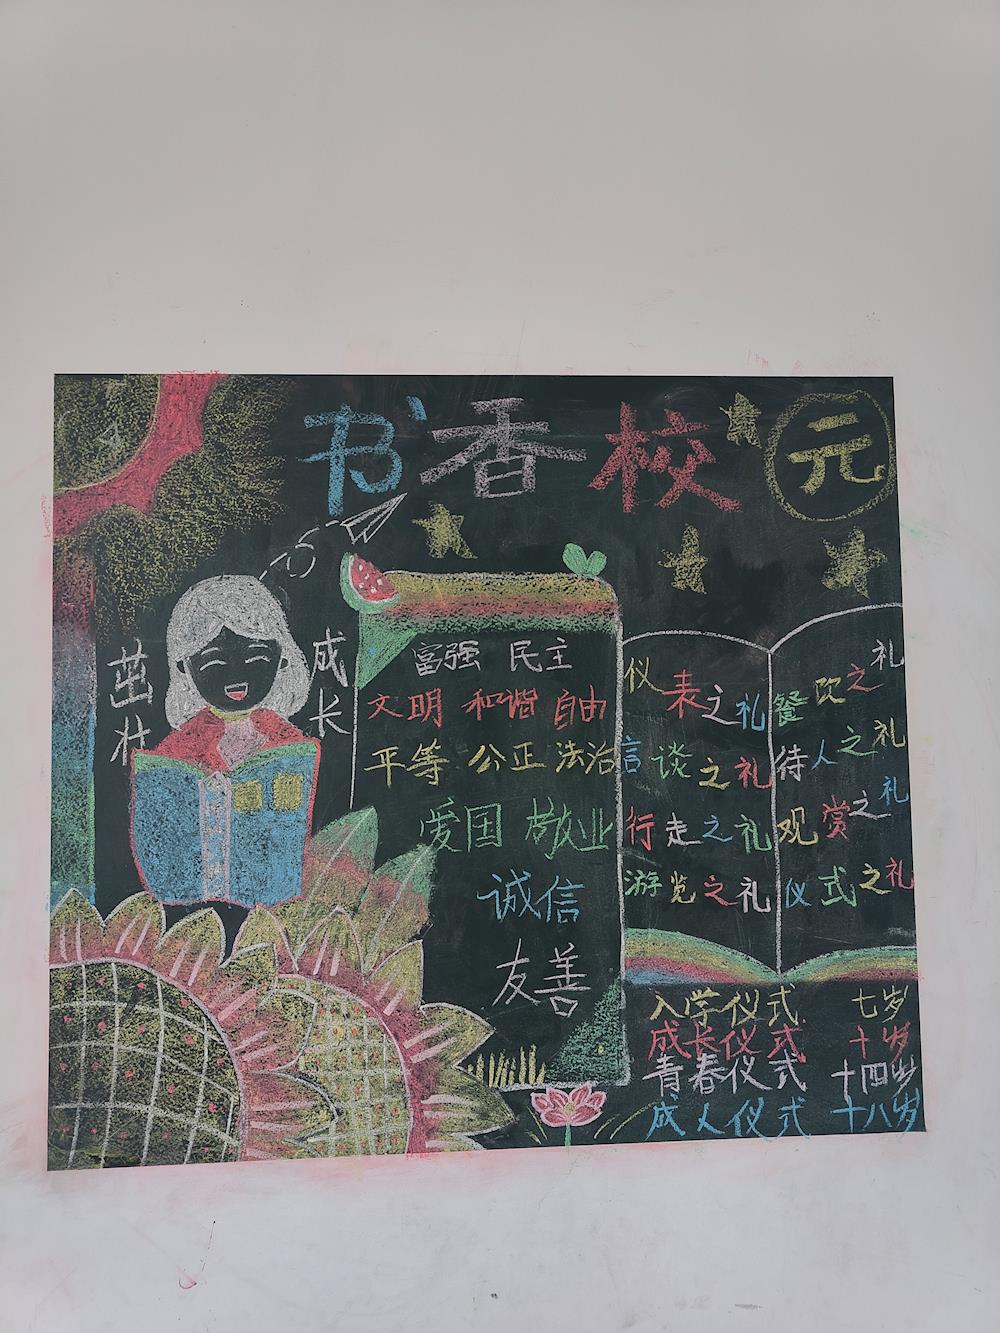 书香校元
茁壮
成长
富强 民主
文明 和谐 自由
平等 公正 法治
爱国 敬业
诚信
友善
仪表之礼
言谈之礼
行走之礼
游览之礼
餐饮之礼
待人之礼
观赏之礼
仪式之礼
入学仪式 七岁
成长仪式 十岁
青春仪式 十四岁
成人仪式 十八岁